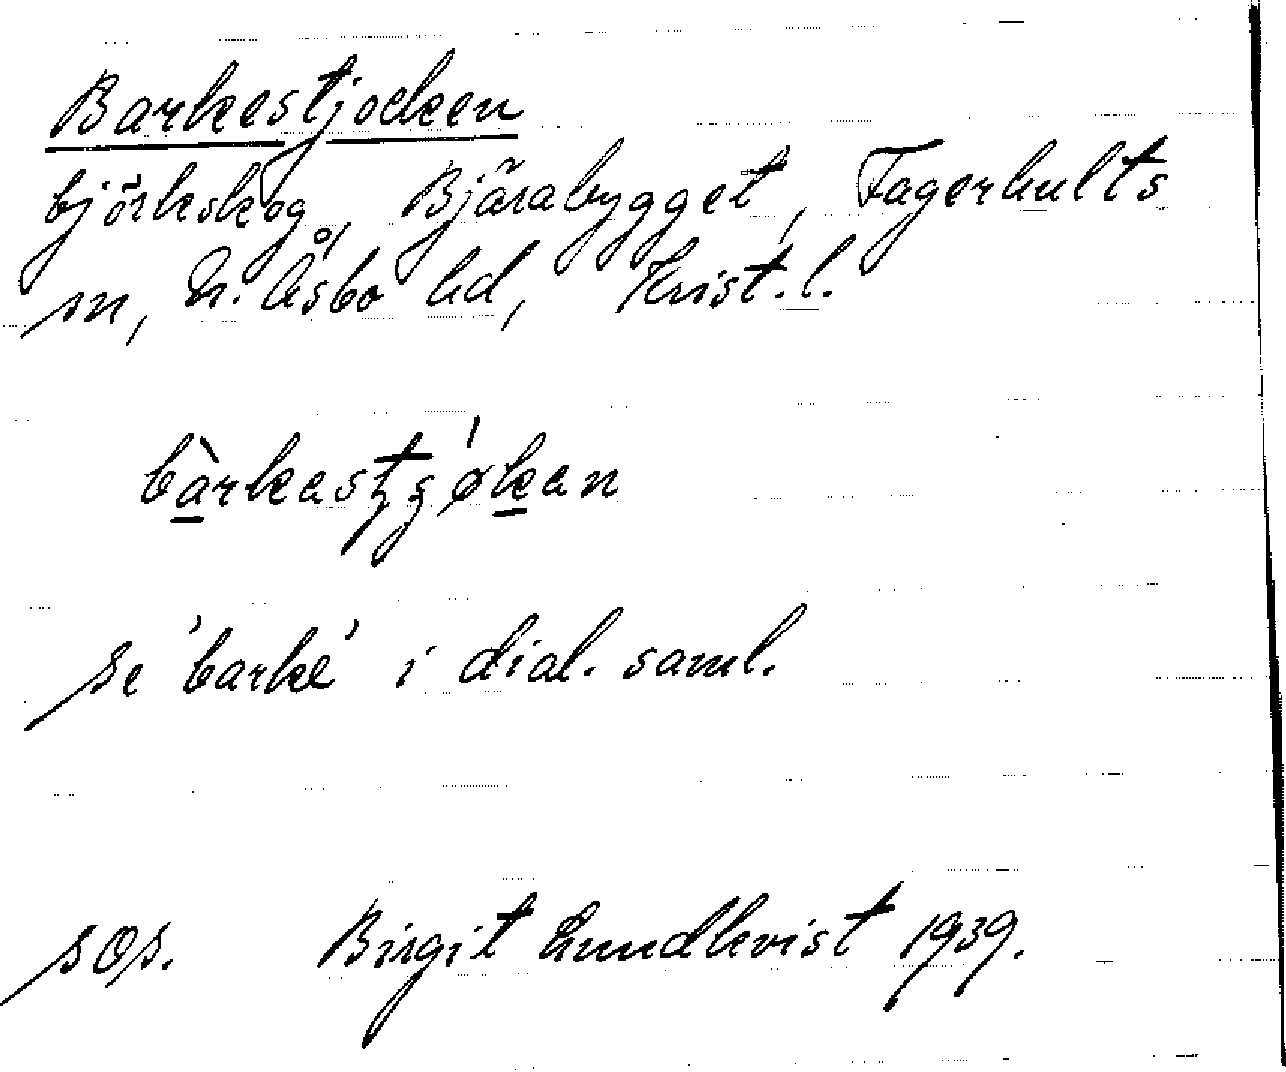 Barkestjocken
björkskog, Bjärabygget, Fagerhults
sn, N. Åsbo hd, Krist. l.
bàrkastʒøkan
se 'barke' i dial. saml.
sOs. Birgit Lundkvist 1939.